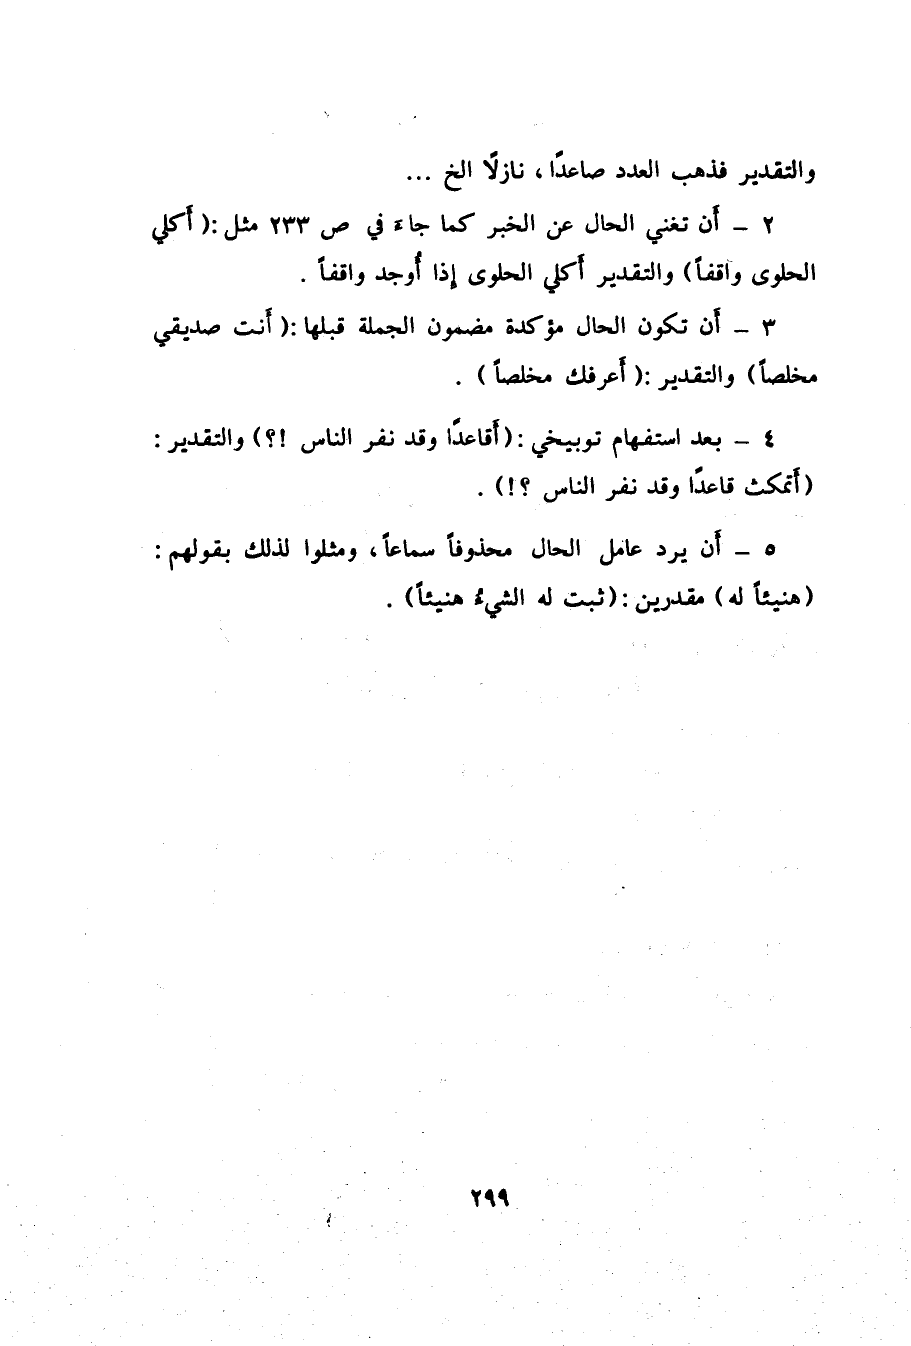 والتقدير فذهب العدد صاعدًا ، نازلًا الخ ...
٢ – أن تغني الحال عن الخبر كما جاءَ في ص ٢٣٣ مثل :( أكلي
الحلوى واقفاً) والتقدير أكلي الحلوى إذا أُوجد واقفاً .
٣ – أن تكون الحال مؤكدة مضمون الجملة قبلها :( أنت صديقي
مخلصاً) والتقدير :( أعرفك مخلصاً ) .
٤ – بعد استفهام توبيخي :(أقاعدًا وقد نفر الناس !؟) والتقدير :
(أتمكث قاعدًا وقد نفر الناس ؟!) .
٥ – أن يرد عامل الحال محذوفاً سماعاً ، ومثلوا لذلك بقولهم :
(هنيئاً له) مقدرين :(ثبت له الشيءُ هنيئاً) .
٢٩٩